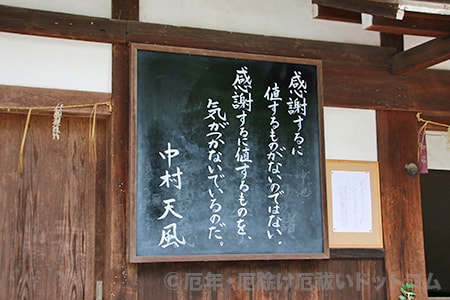 感謝するに
値するものがないのではない。
感謝するに値するものを、
気がつかないでいるのだ。
中村天風
©厄年・厄除け厄祓いドットコム